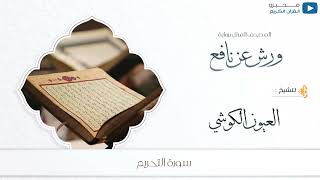 محبرو
القرآن الكريم
المصحف المرتل برواية
ورش عن نافع
للشيخ :
العيون الكوشي
سورة التحريم